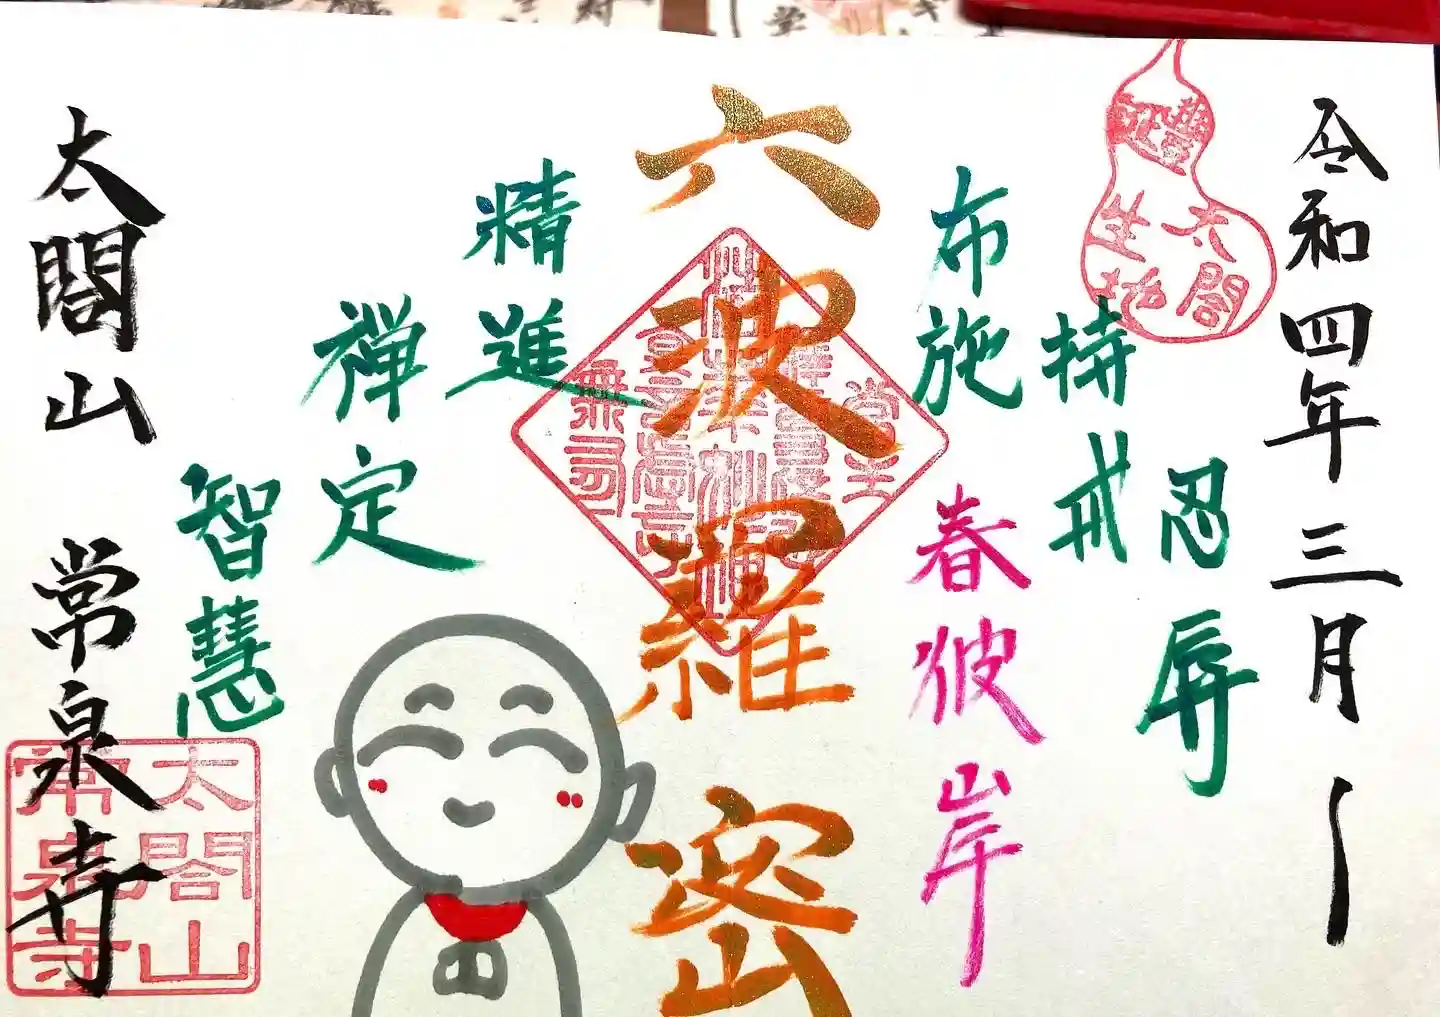 令和四年三月
豊臣
太閤
生地
忍辱
持戒
布施
春彼岸
六波羅蜜
精進
禅定
智慧
太閤山 常泉寺
太閤山
常泉寺